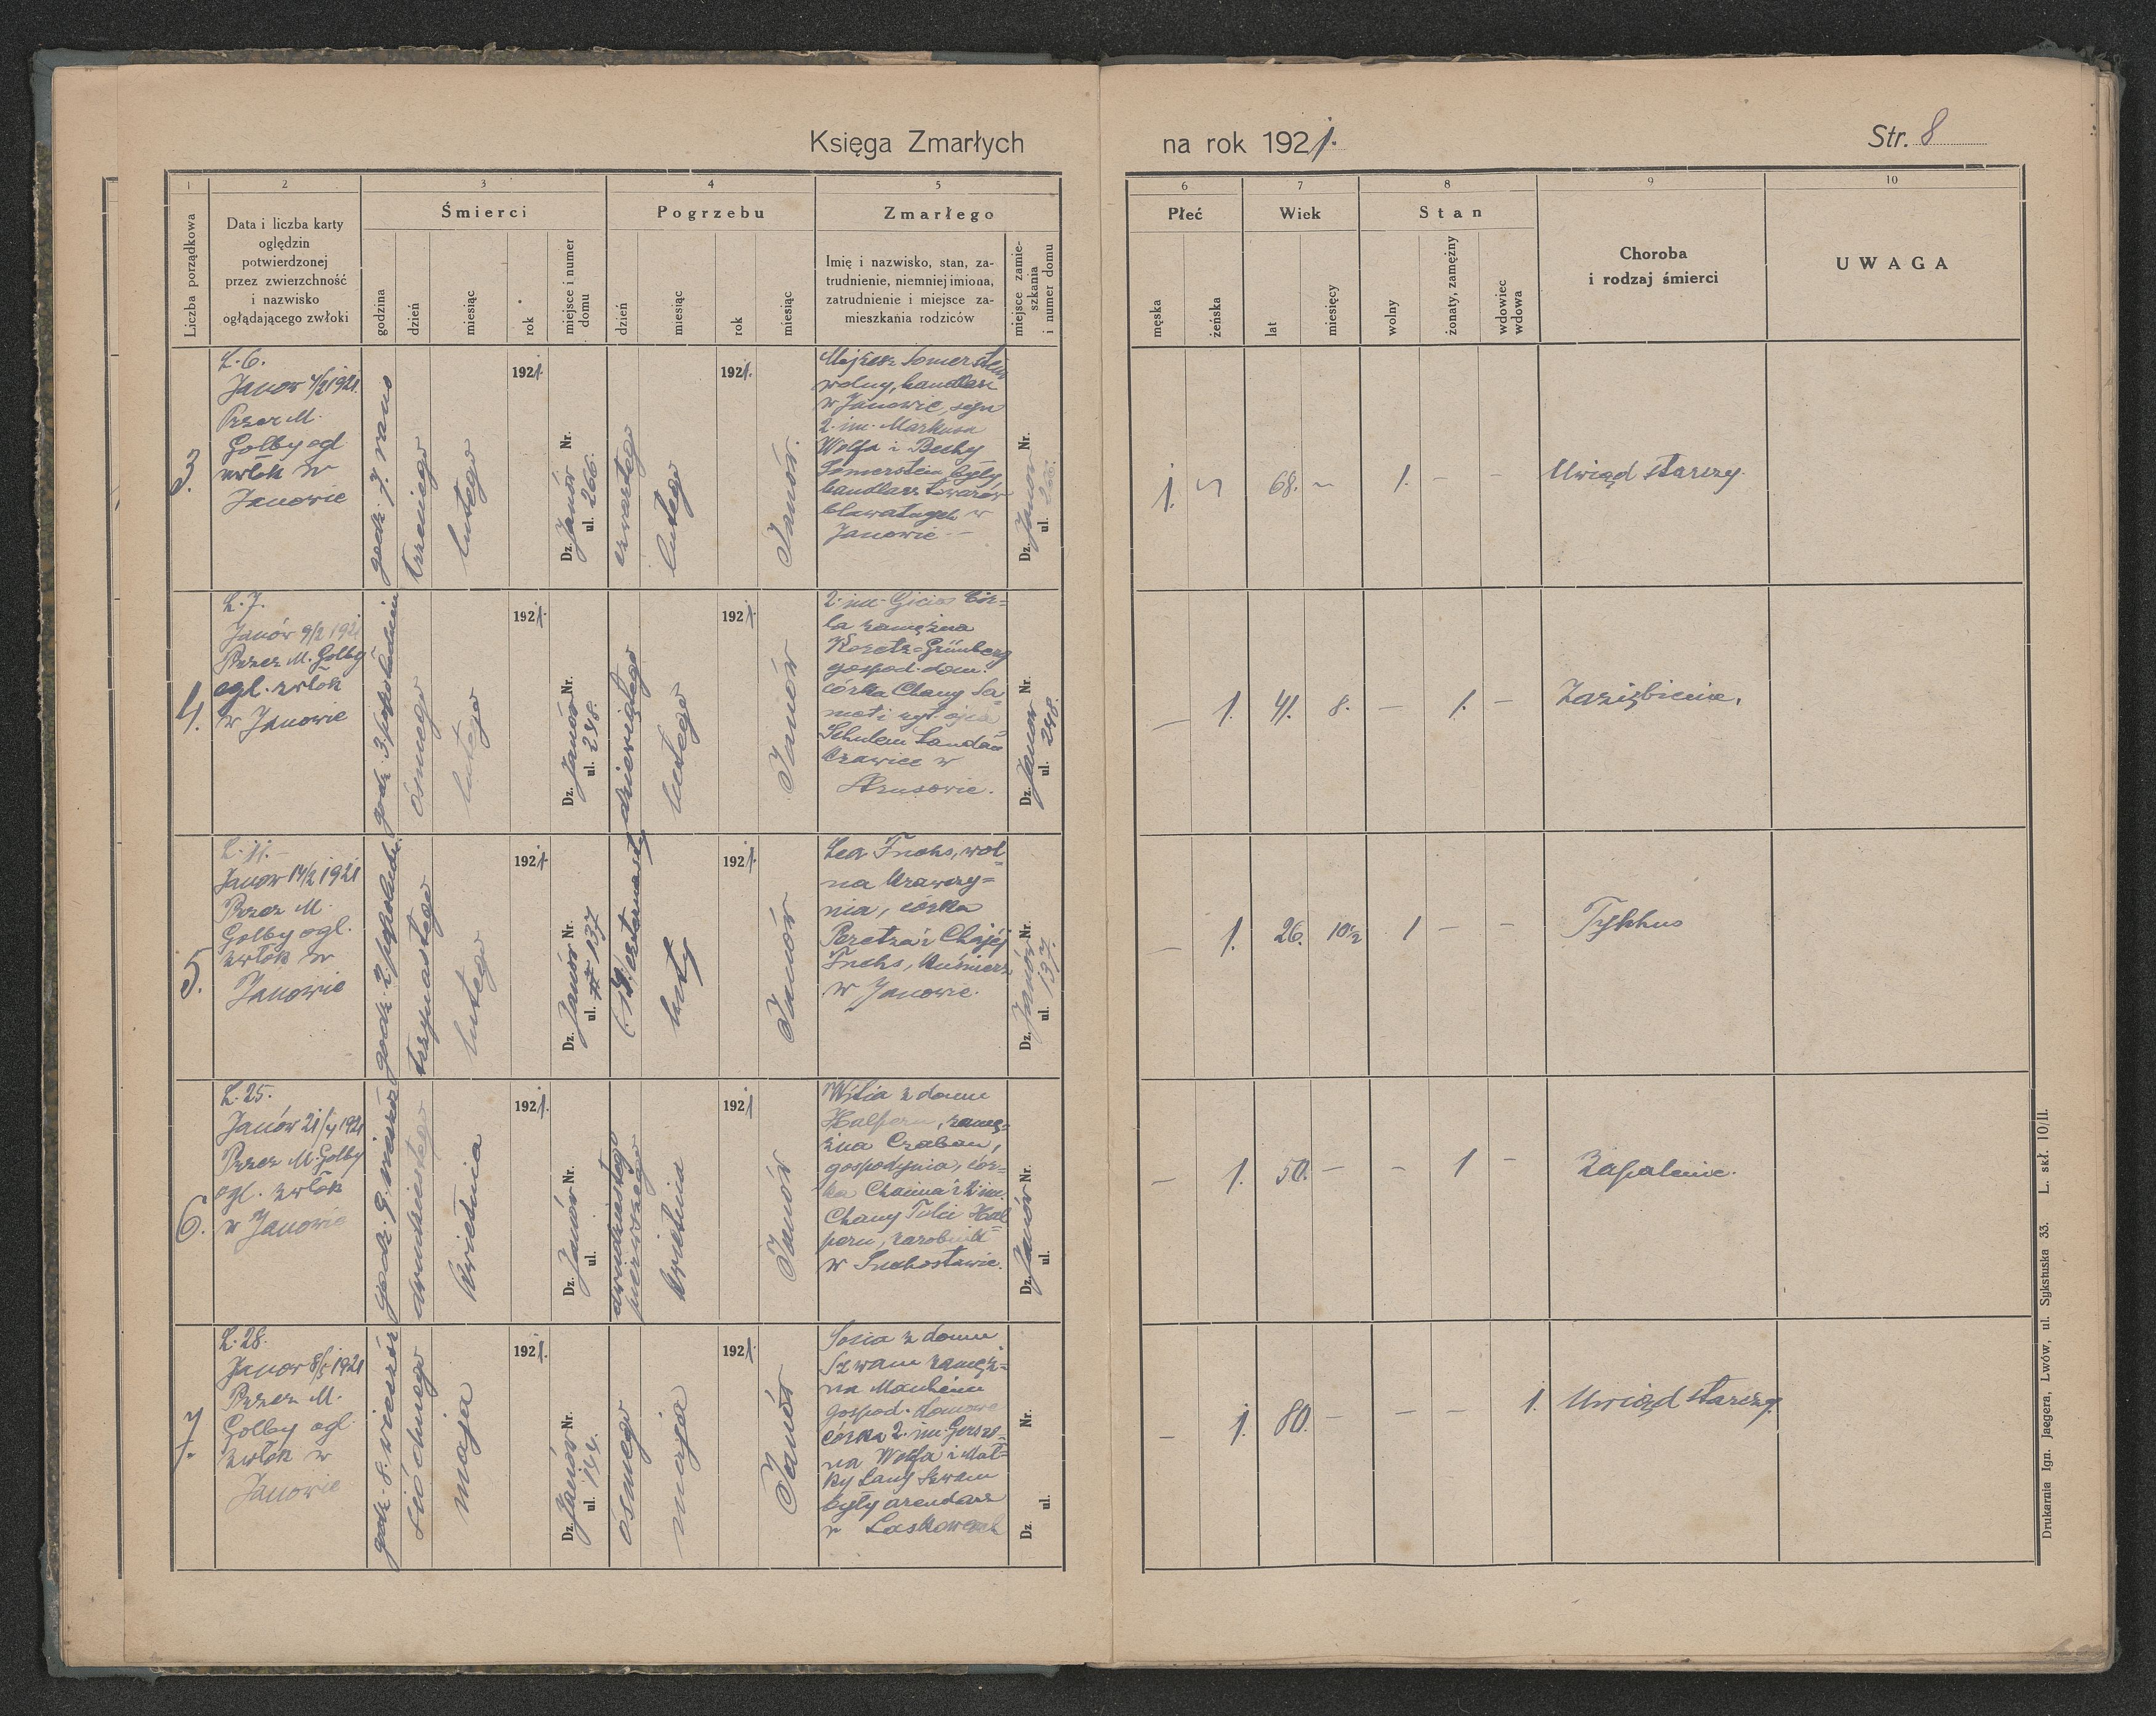 Księga Zmarłych na rok 1921.
Str. 8
1 2 3 4 5 6 7 8 9 10
Liczba porządkowa
Data i liczba karty
oględzin
potwierdzonej
przez zwierzchność
i nazwisko
oglądającego zwłoki
Śmierci
godzina
dzień
miesiąc
rok
miejsce i numer
domu
Pogrzebu
dzień
miesiąc
rok
miesiąc
Zmarłego
Imię i nazwisko, stan, za-
trudnienie, niemniej imiona,
zatrudnienie i miejsce za-
mieszkania rodziców
miejsce zamie-
szkania
i numer domu
Płeć
męska
żeńska
Wiek
lat
miesięcy
Stan
wolny
żonaty, zamężny
wdowiec
wdowa
Choroba
i rodzaj śmierci
UWAGA
3.
L. 6.
Janow 4/2 1921.
Przez M.
Golby ogl
zwłok w
Janowie
godz. 7. rano
trzeciego
lutego
1921.
Dz. Janów Nr.
ul. 266.
czwartego
lutego
1921.
Janów.
Mojżesz Somerstein
wolny, handlarz
w Janowie, syn
2. im. Markusa
Wolfa i Bechy
Somerstein były
handlarz towarów
bławatnych w
Janowie
Dz. Janów Nr.
ul. 266.
1. 68. 1. - -
Uwiąd starczy.
4.
L. 7.
Janów 9/2 1921
Przez M. Golby
ogl. zwłok
w Janowie
godz. 3. popołudniu
ósmego
lutego
1921.
Dz. Janów Nr.
ul. 248.
dziewiątego
lutego
1921.
Janów
la zamężna
Koretz=Grünberg
gospod. dom.
córka Chany
Schulem Landau
krawiec w
Dz. Janow Nr.
ul. 248.
- 1. 41. 8. - 1. -
Zaziębienie.
5.
L. 11.-
Janow 14/2 1921
Przez M.
Golby ogl.
zwłok w
Janowie
godz. 2. popołudniu
trzynastego
lutego
1921.
Dz. Janów Nr.
ul. 137
(14) czternasty
luty
1921.
Janów
Lea Fuchs, wol-
na krawczy=
nia, córka
Peretza i Chajej
Fuchs, kuśnierz
w Janowie.
Dz. Janów Nr.
ul. 137.
- 1. 26. 10½ 1 - -
Typhus
6.
L. 25.
Janów 21/4 1921
Przez M. Golby
ogl. zwłok
w Janowie
godz. 9. wieczór
dwudziestego
kwietnia
1921.
Dz. Janów Nr.
ul.
dwudziestego
pierwszego
kwietnia
1921
Janów
z domu
Halpern, zamęż-
żna Czaban,
gospodynia, cór-
ka Chaima i 2 im.
Chany Tulci Hal
pern, zarobnik
w Suchostawie.
Dz. Janów Nr.
ul.
- 1. 50. - - 1 -
Zapalenie.
7.
L. 28.
Janow 8/5 1921
Przez M.
Golby ogl
zwłok w
Janowie
godz. 8. wieczór
siódmego
maja
1921.
Dz. Janów Nr.
ul. 144.
ósmego
maja
1921.
Janów
Sosia z domu
Szwam zamęż=
na
gospod. domowe
córka 2. im.
na Wolfa i Mat=
ky Lany Szwam
były arendarz
w
Dz. Nr.
ul.
- 1. 80. - - - 1.
Uwiąd starczy.
Drukarnia Ign. Jaegera, Lwów, ul. Sykstuska 33. L. skł. 10/II.